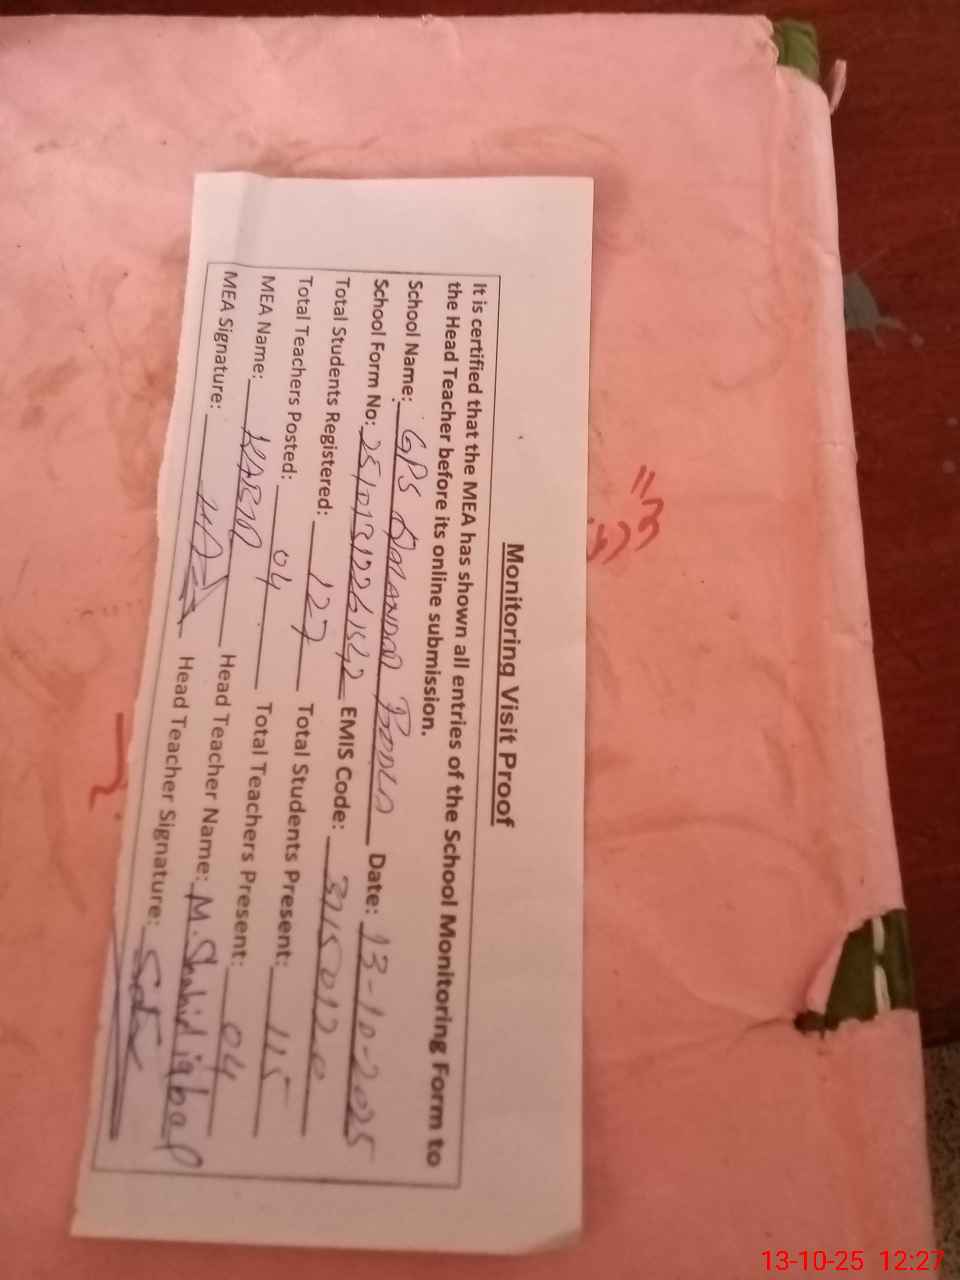 Monitoring Visit Proof
It is certified that the MEA has shown all entries of the School Monitoring Form to
the Head Teacher before its online submission.
School Name: GPS Qalandar Bodla Date: 13-10-2025
School Form No: EMIS Code: 37150120
Total Students Registered: 127 Total Students Present: 115
Total Teachers Posted: 04 Total Teachers Present: 04
MEA Name: Head Teacher Name: M. Shahid iqbal
MEA Signature: Head Teacher Signature:
13-10-25 12:27